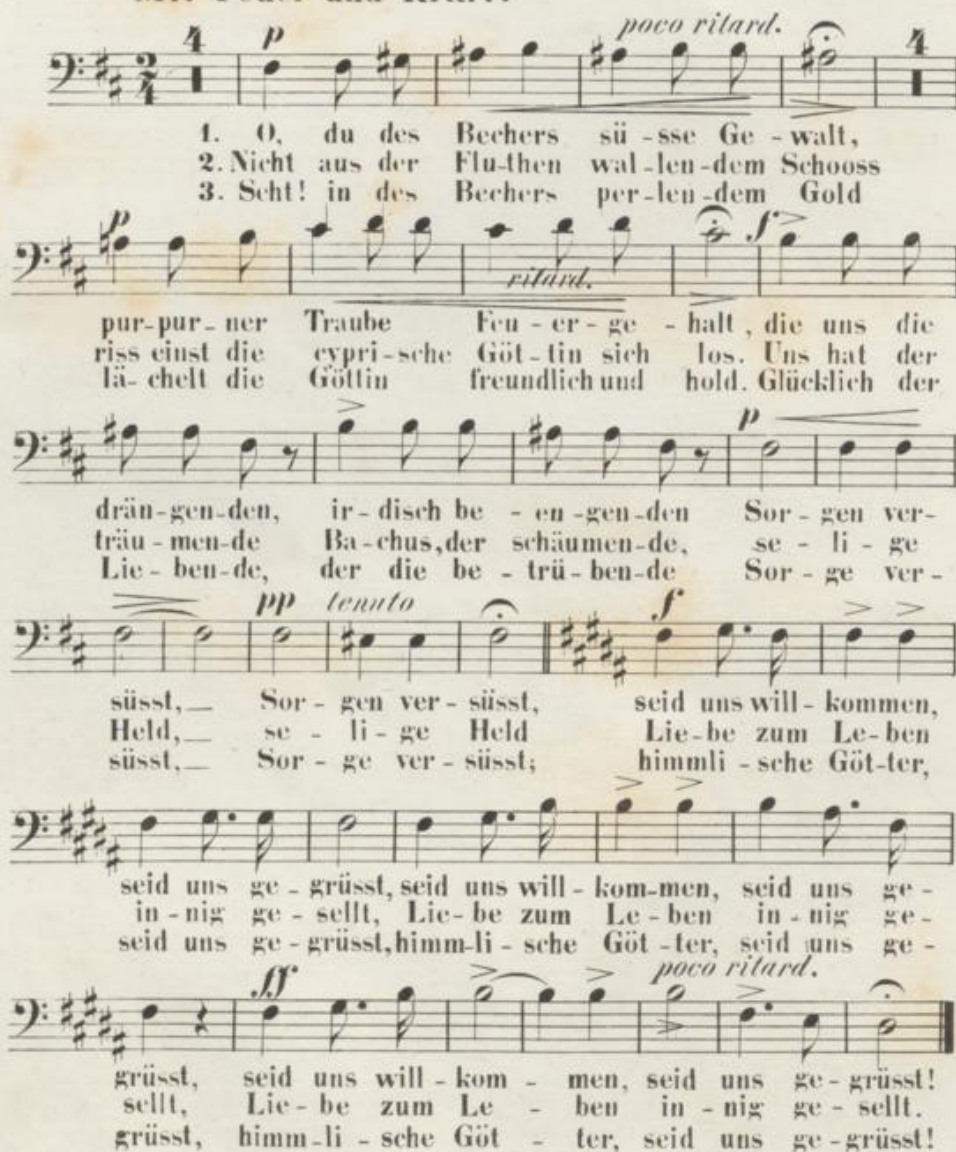 Mit Feuer und Kraft.
4 p poco ritard. 4
2 4
1. O, du des Bechers sü-sse Ge-walt,
2. Nicht aus der Flu-then wal-len-dem Schooss
3. Seht! in des Bechers per-len-dem Gold
p ritard. f
pur-pur-ner Traube Feu-er-ge-halt, die uns die
riss einst die cypri-sche Göt-tin sich los. Uns hat der
lä-chelt die Göttin freundlich und hold. Glücklich der
p
drän-gen-den, ir-disch be-en-gen-den Sor-gen ver-
träu-men-de Ba-chus, der schäumen-de, se-li-ge
Lie-ben-de, der die be-trü-ben-de Sor-ge ver-
pp tenuto f
süsst,_ Sor-gen ver-süsst, seid uns will-kommen,
Held,_ se-li-ge Held Lie-be zum Le-ben
süsst,_ Sor-ge ver-süsst; himmli-sche Göt-ter,
seid uns ge-grüsst, seid uns will-kom-men, seid uns ge-
in-nig ge-sellt, Lie-be zum Le-ben in-nig ge-
seid uns ge-grüsst, himm-li-sche Göt-ter, seid uns ge-
ff poco ritard.
grüsst, seid uns will-kom-men, seid uns ge-grüsst!
sellt, Lie-be zum Le-ben in-nig ge-sellt.
grüsst, himm-li-sche Göt-ter, seid uns ge-grüsst!